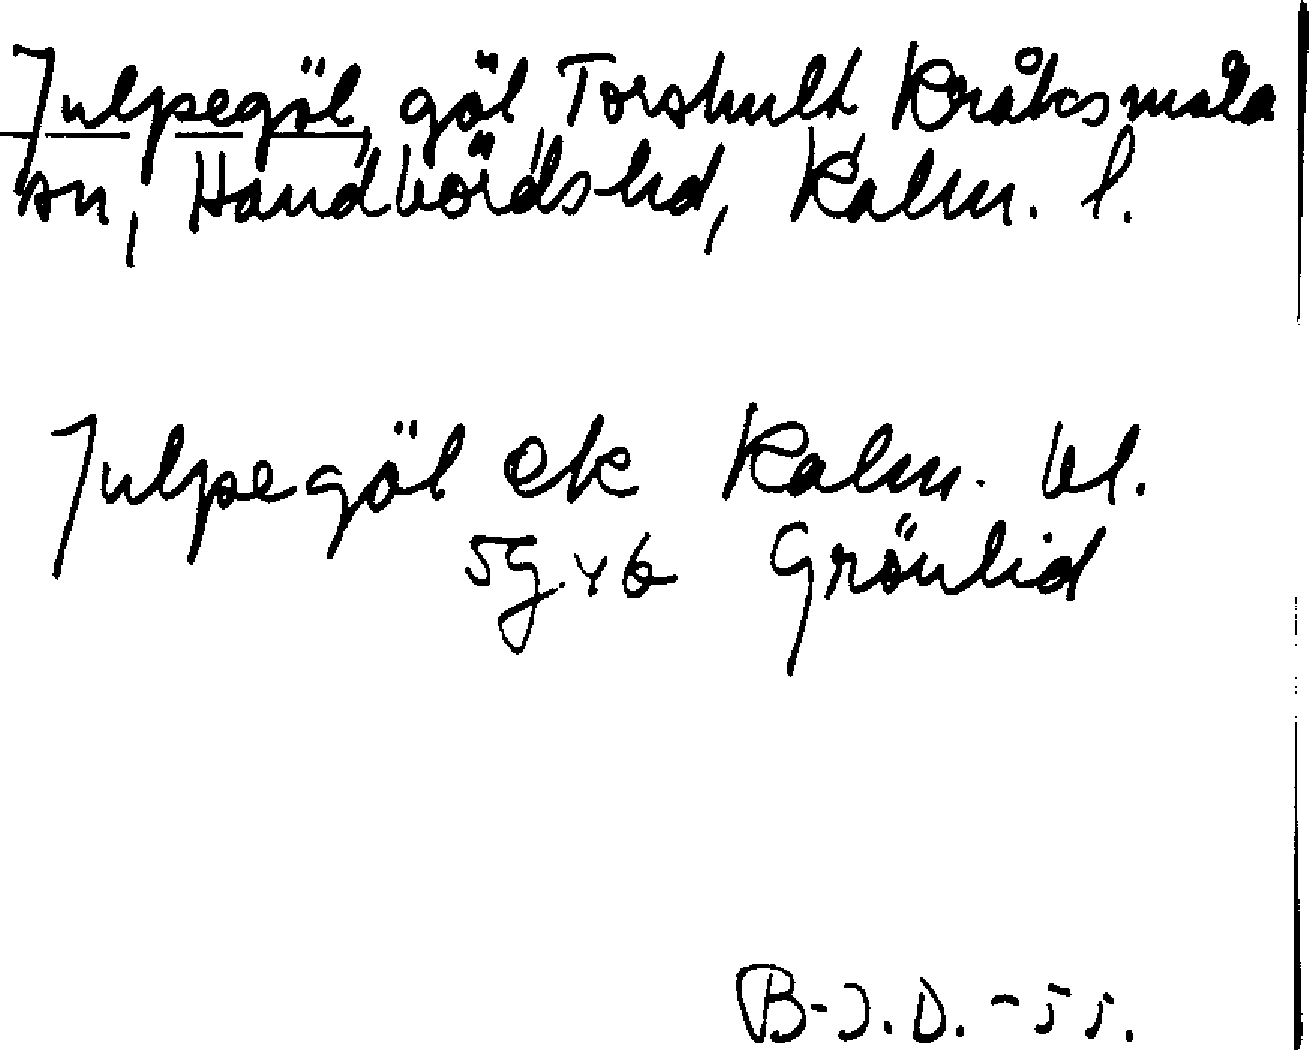 Julpegöl, göl Torshult Kråksmåla
sn, Handbörds hd, Kalm. l.
Julpegöl ek Kalm. bl.
5g.y6 Grönlid
B-J.D. -55.